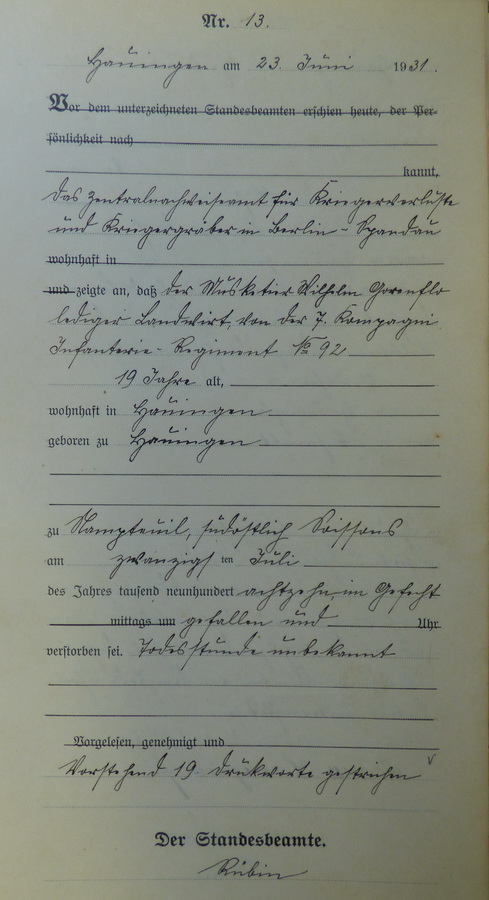 Nr. 13.
Hauingen am 23. Juni 1931.
Vor dem unterzeichneten Standesbeamten erschien heute, der Per-
sönlichkeit nach
kannt,
Das Zentralnachweiseamt für Kriegerverluste
und Kriegergräber in Berlin - Spandau
wohnhaft in
und zeigte an, daß der Musketier Wilhelm Gorenflo
lediger Landwirt, von der 7. Kompagni
Infanterie - Regiment No 92
19 Jahre alt,
wohnhaft in Hauingen
geboren zu Hauingen
zu Nampteuil, südöstlich Soissons
am zwanzigsten Juli
des Jahres tausend neunhundert achtzehn, im Gefecht
mittags um gefallen und Uhr
verstorben sei. Todesstunde unbekannt
Vorgelesen, genehmigt und
Vorstehend 19 Druckworte gestrichen
Der Standesbeamte.
Rübin